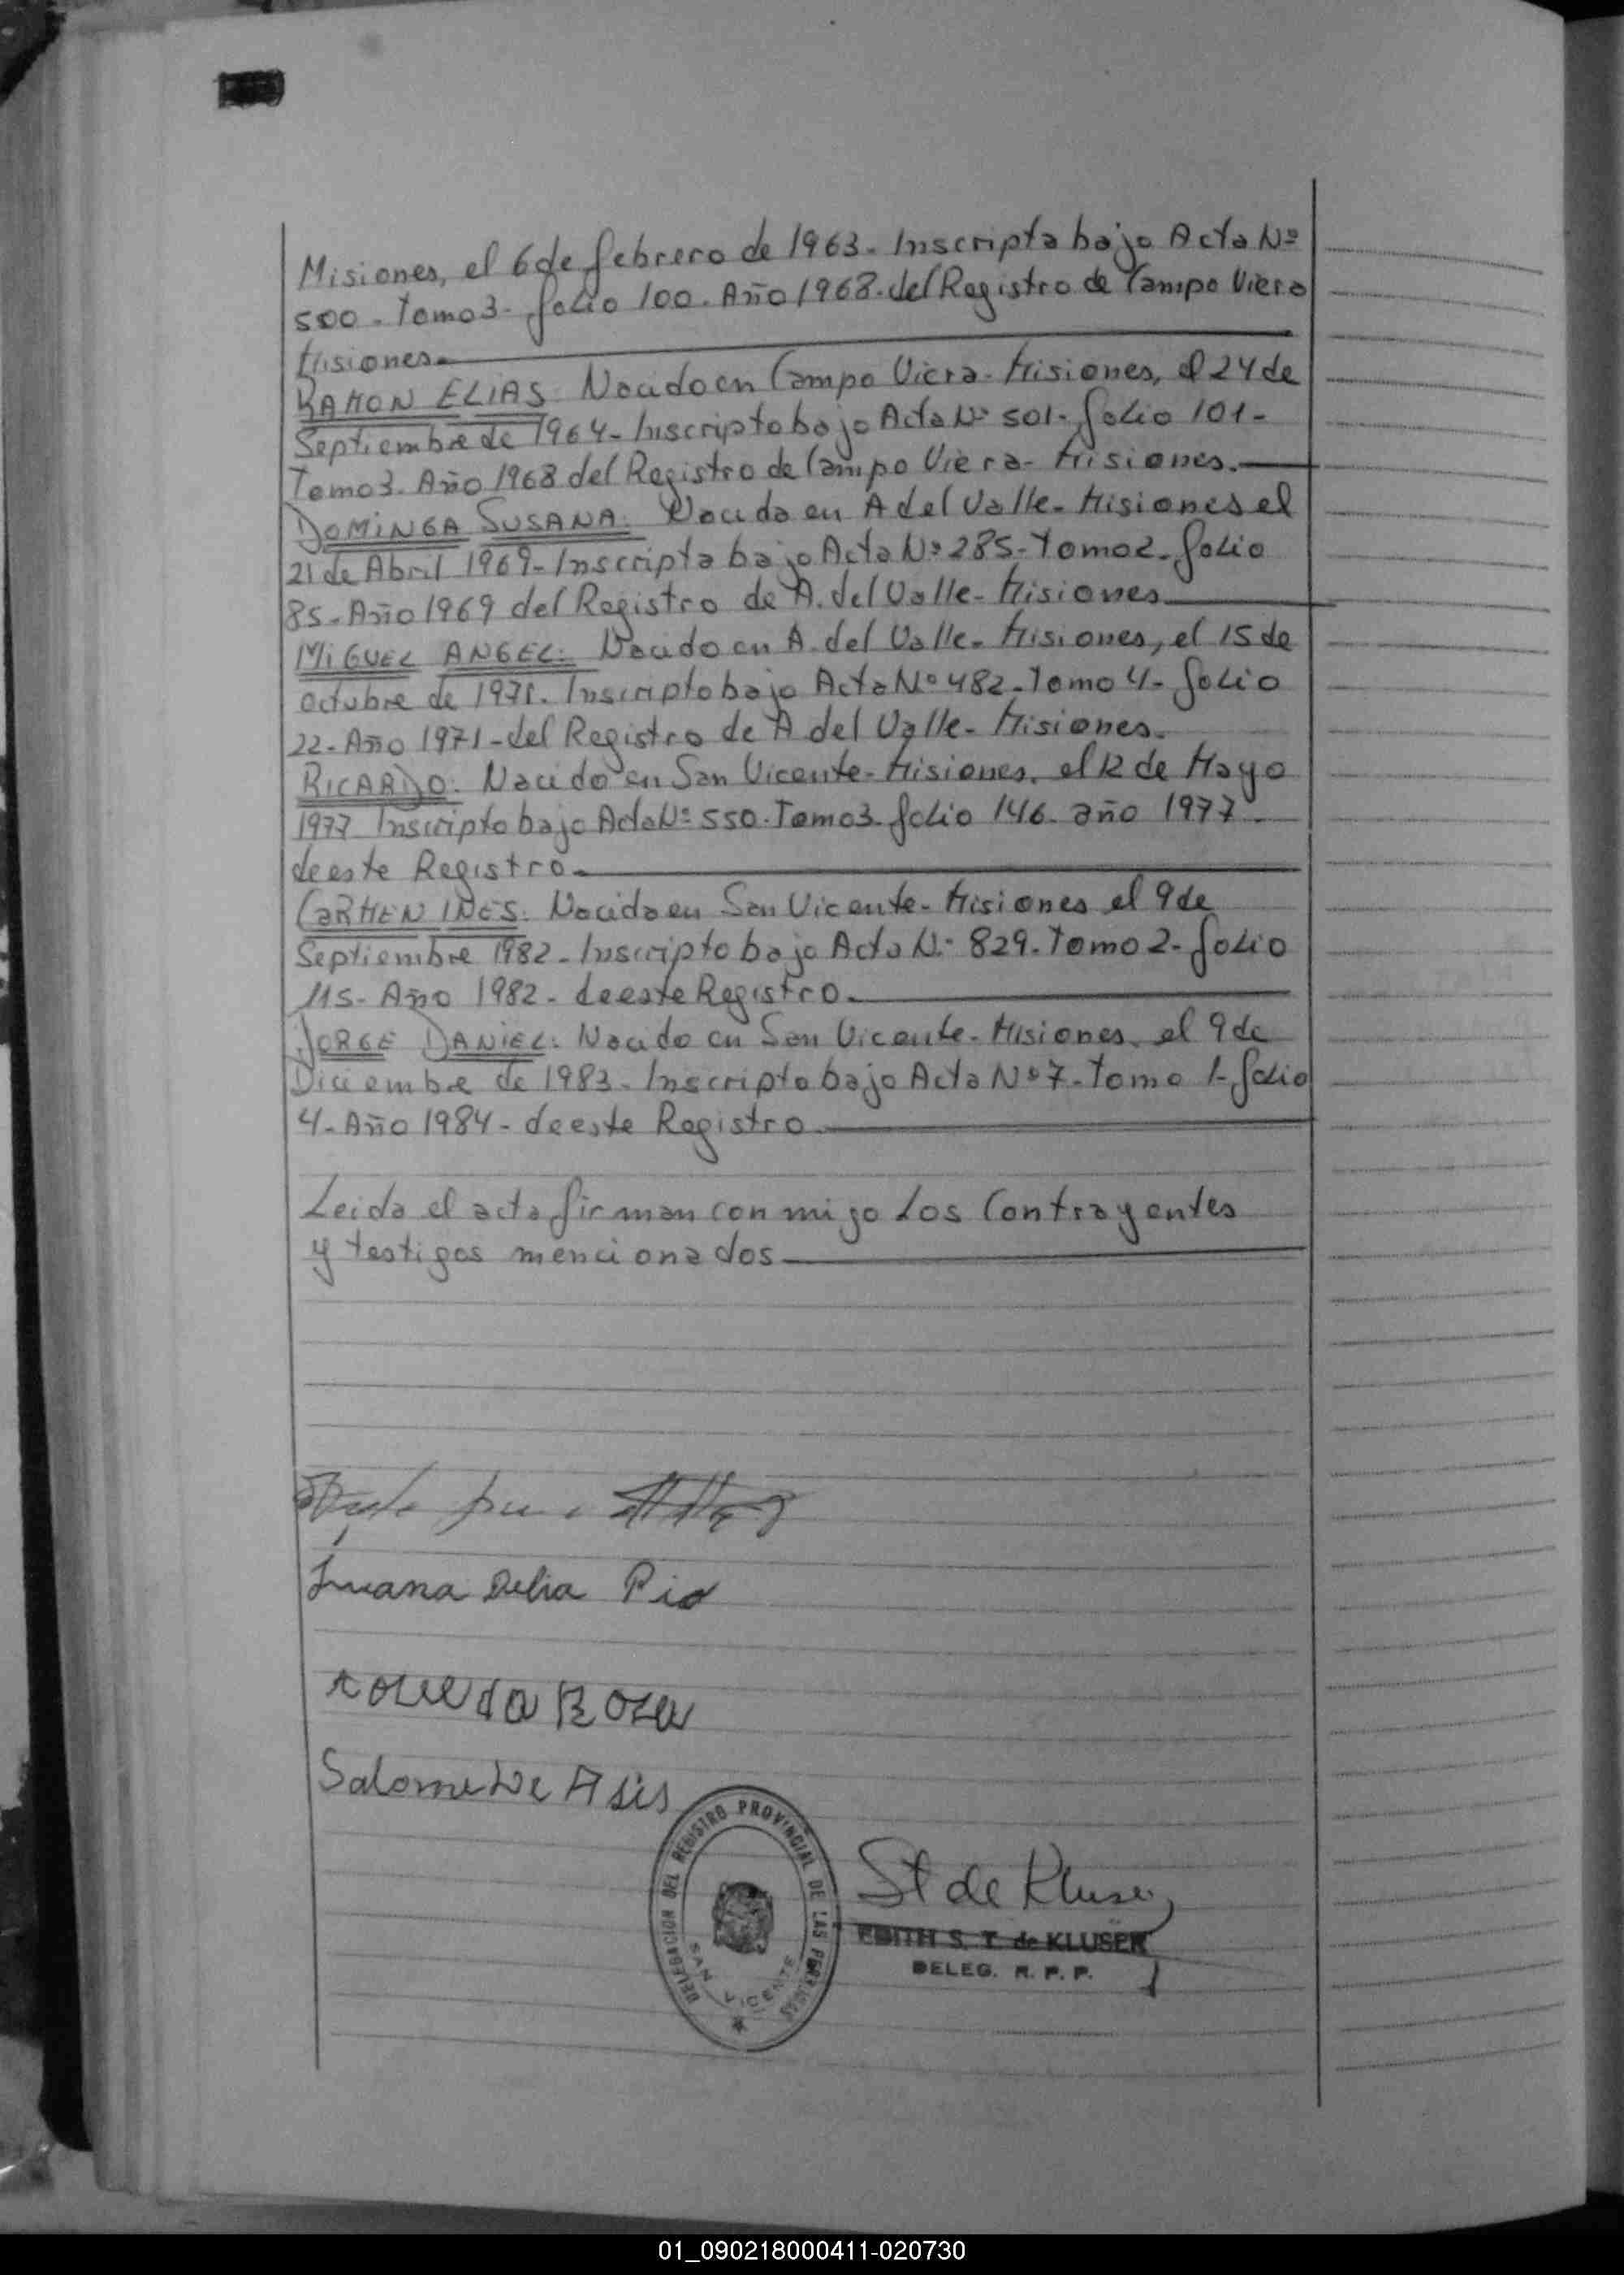 Misiones, el 6 de febrero de 1963 - Inscripta bajo Acta Nº
500 - Tomo 3 - folio 100 - Año 1968 - del Registro de Campo Viera
Misiones.
RAMON ELIAS: Nacido en Campo Viera - Misiones, el 24 de
Septiembre de 1964 - Inscripto bajo Acta Nº 501 - folio 101 -
Tomo 3 - Año 1968 del Registro de Campo Viera - Misiones.
DOMINGA SUSANA: Nacida en A del Valle - Misiones el
21 de Abril 1969 - Inscripta bajo Acta Nº 285 - Tomo 2 - folio
85 - Año 1969 del Registro de A. del Valle - Misiones
MIGUEL ANGEL: Nacido en A. del Valle - Misiones, el 15 de
octubre de 1971. Inscripto bajo Acta Nº 482 - Tomo 4 - folio
22 - Año 1971 - del Registro de A del Valle - Misiones.
RICARDO: Nacido en San Vicente - Misiones, el 12 de Mayo
1977 Inscripto bajo Acta Nº 550 - Tomo 3 - folio 146 - año 1977
de este Registro.
CARMEN INES: Nacida en San Vicente - Misiones el 9 de
Septiembre 1982 - Inscripto bajo Acta N: 829 - Tomo 2 - folio
115 - Año 1982 - de este Registro.
JORGE DANIEL: Nacido en San Vicente - Misiones, el 9 de
Diciembre de 1983 - Inscripto bajo Acta Nº 7 - Tomo 1 - folio
4 - Año 1984 - de este Registro
Leida el acta firman conmigo Los Contrayentes
y testigos mencionados
Juana Delia Pio
Salome De Asis
DELEGACION DEL REGISTRO PROVINCIAL DE LAS PERSONAS
SAN VICENTE
St de Kluser
EDITH S. T. de KLUSER
DELEG. R. P. P.
01_090218000411-020730